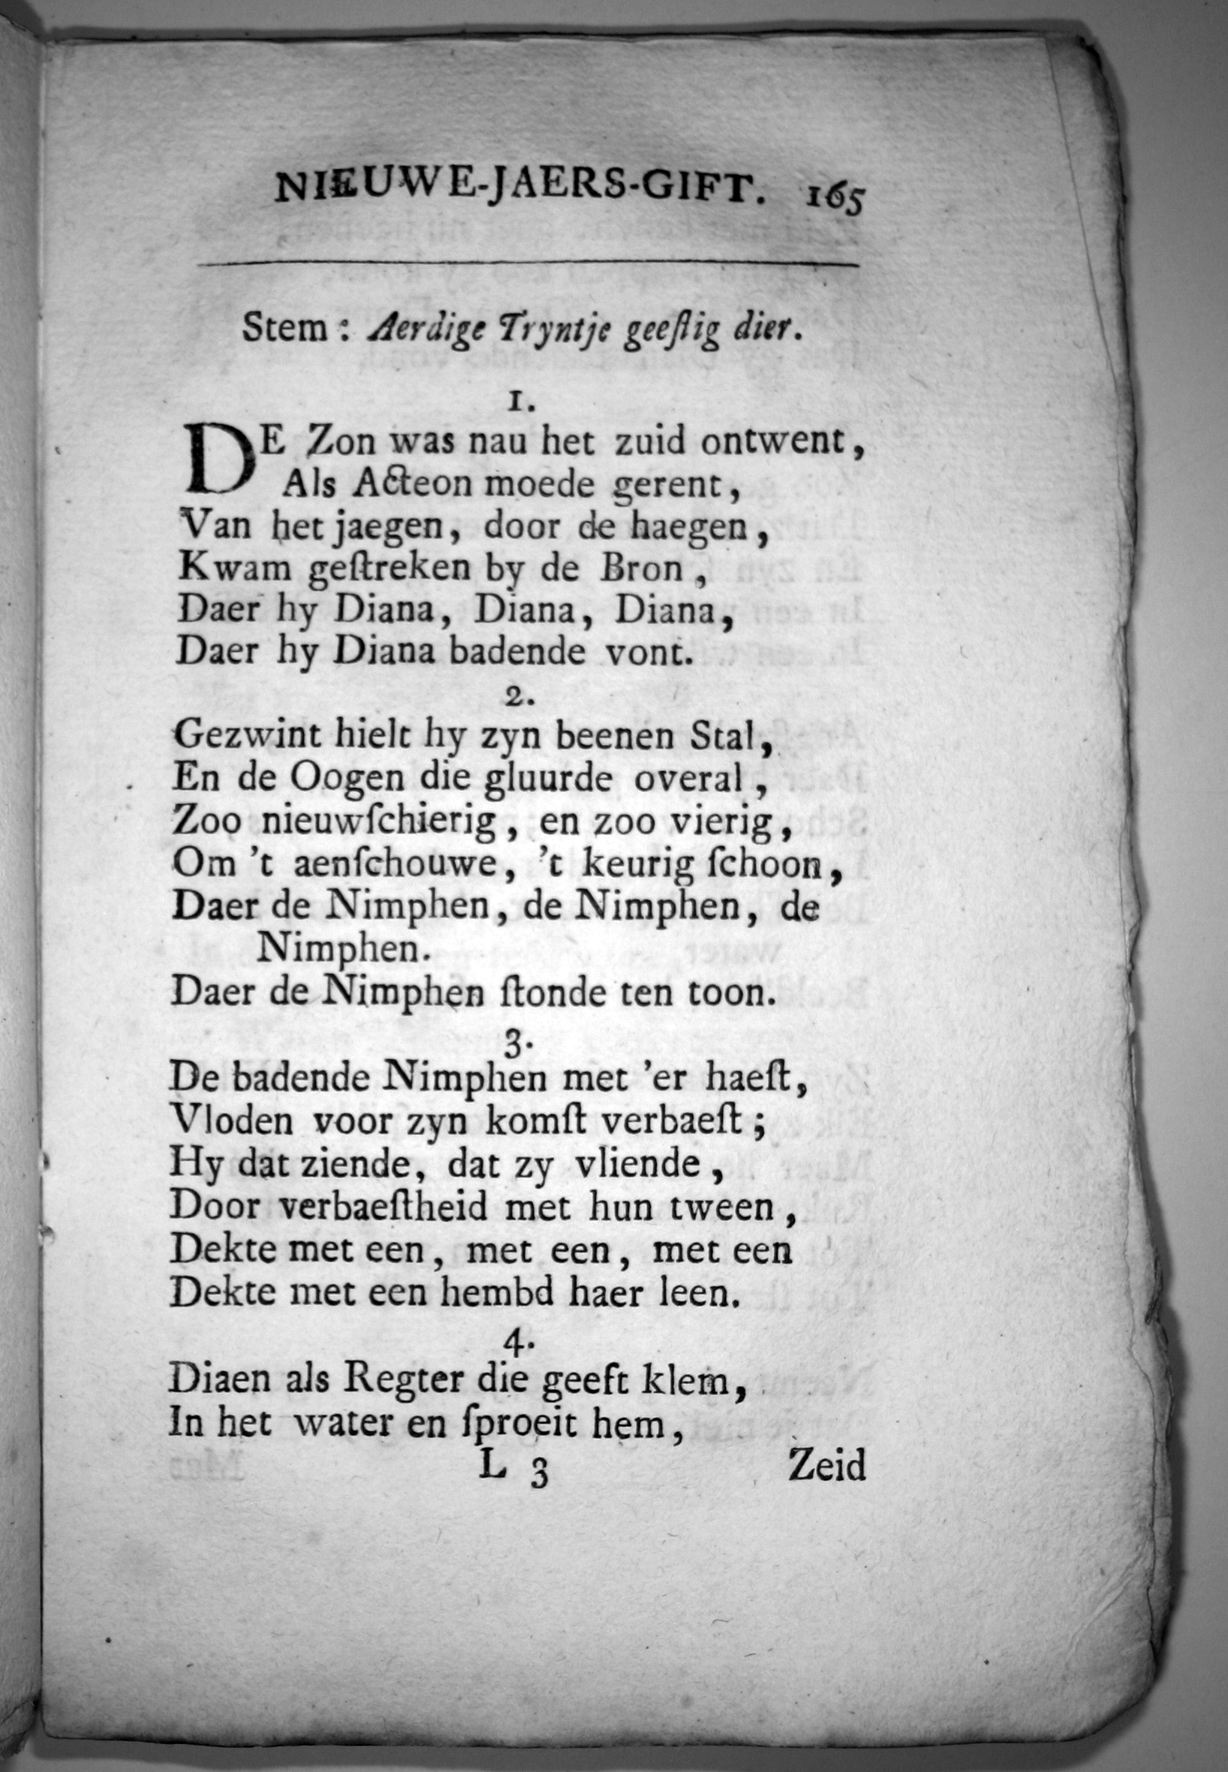 NIEUWE-JAERS-GIFT. 165
Stem: Aerdige Tryntje geeſtig dier.
1.
DE Zon was nau het zuid ontwent,
Als Acteon moede gerent,
Van het jaegen, door de haegen,
Kwam geſtreken by de Bron,
Daer hy Diana, Diana, Diana,
Daer hy Diana badende vont.
2.
Gezwint hielt hy zyn beenen Stal,
En de Oogen die gluurde overal,
Zoo nieuwſchierig, en zoo vierig,
Om 't aenſchouwe, 't keurig ſchoon,
Daer de Nimphen, de Nimphen, de
Nimphen.
Daer de Nimphen ſtonde ten toon.
3.
De badende Nimphen met 'er haeſt,
Vloden voor zyn komſt verbaeſt;
Hy dat ziende, dat zy vliende,
Door verbaeſtheid met hun tween,
Dekte met een, met een, met een
Dekte met een hembd haer leen.
4.
Diaen als Regter die geeft klem,
In het water en ſproeit hem,
L 3 Zeid